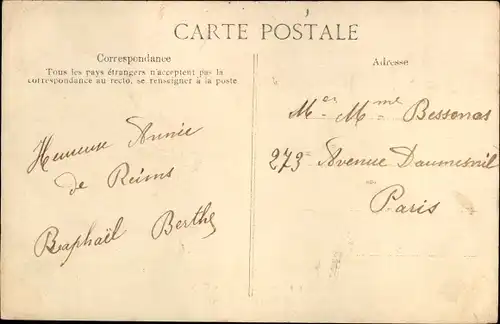 CARTE POSTALE
Correspondance
Tous les pays étrangers n'acceptent pas la
correspondance au recto, se renseigner à la poste
Heureuse Année
de Reims
Raphaël Berthe
Adresse
Mr Mme Bessonas
273 Avenue Daumesnil
Paris